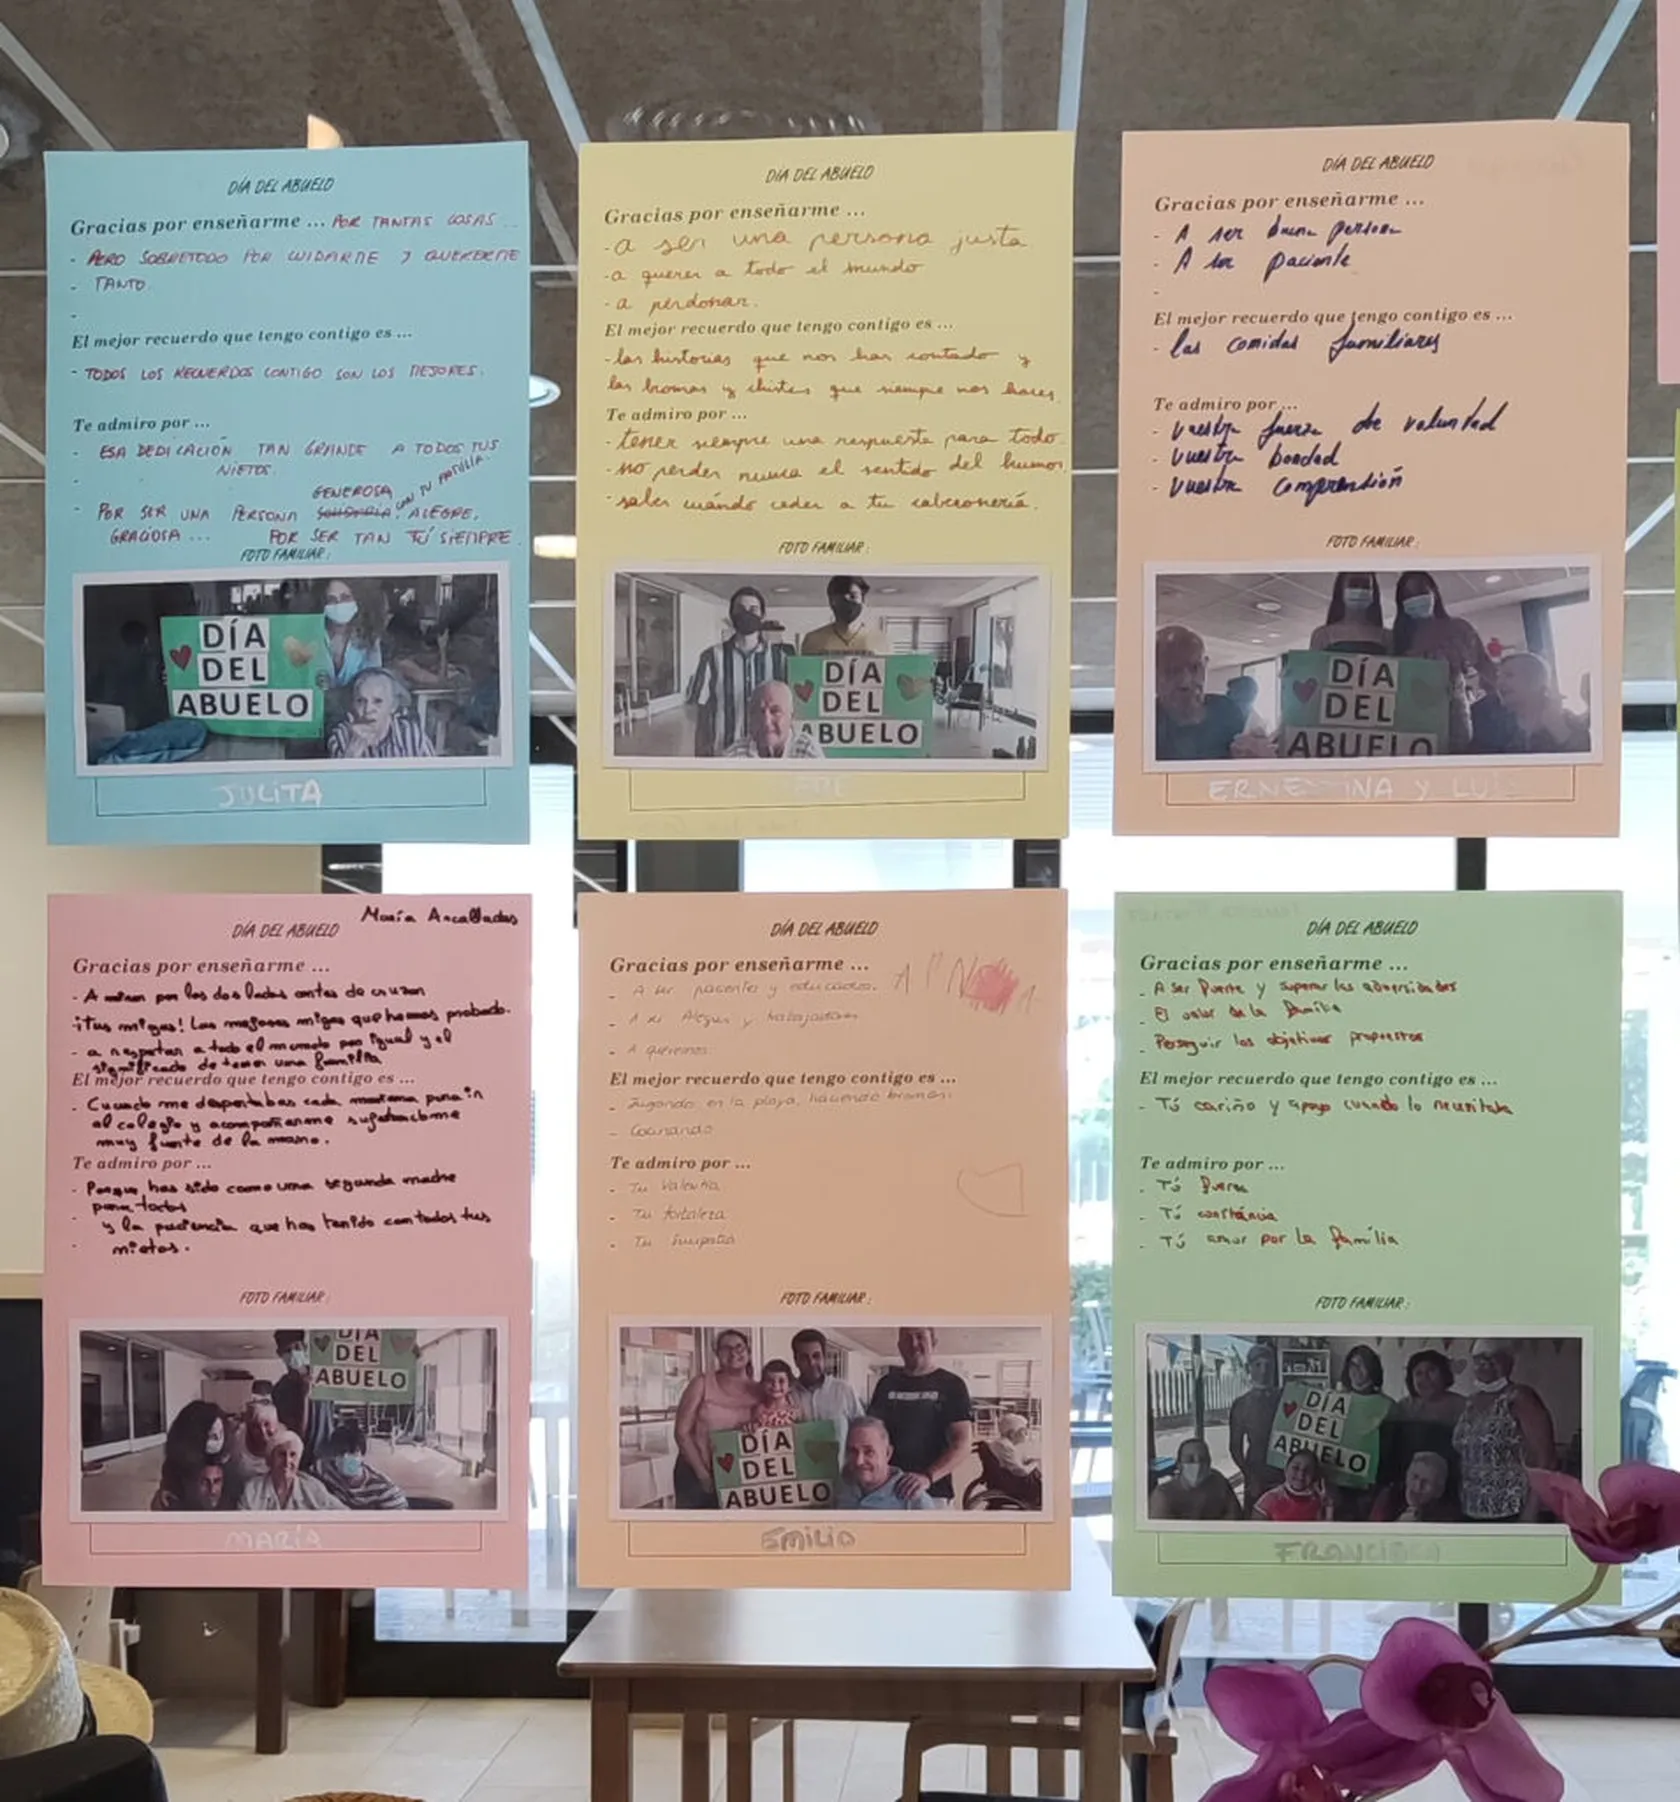 DÍA DEL ABUELO
Gracias por enseñarme ... POR TANTAS COSAS...
- PERO SOBRETODO POR CUIDARME Y QUERERME
- TANTO.
-
El mejor recuerdo que tengo contigo es ...
- TODOS LOS RECUERDOS CONTIGO SON LOS MEJORES.
Te admiro por ...
- ESA DEDICACIÓN TAN GRANDE A TODOS TUS
- NIETOS.
GENEROSA CON TU FAMILIA.
- POR SER UNA PERSONA ALEGRE,
GRACIOSA ... POR SER TAN TÚ SIEMPRE.
FOTO FAMILIAR :
DÍA
DEL
ABUELO
JULITA
DÍA DEL ABUELO
Gracias por enseñarme ...
- a ser una persona justa
- a querer a todo el mundo
- a perdonar.
El mejor recuerdo que tengo contigo es ...
- las historias que nos has contado y
las bromas y chistes que siempre nos haces.
Te admiro por ...
- tener siempre una respuesta para todo
- no perder nunca el sentido del humor
- saber cuándo ceder a tu cabezonería.
FOTO FAMILIAR :
DÍA
DEL
ABUELO
DÍA DEL ABUELO
Gracias por enseñarme ...
- A ser buena persona
- A ser paciente
-
El mejor recuerdo que tengo contigo es ...
- las comidas familiares
Te admiro por ...
- Vuestra fuerza de voluntad
- Vuestra bondad
- Vuestra comprensión
FOTO FAMILIAR :
DÍA
DEL
ABUELO
ERNESTINA Y LUIS
María Ancalladas
DÍA DEL ABUELO
Gracias por enseñarme ...
- A mirar por los dos lados antes de cruzar
¡Tus migas! Las mejores migas que hemos probado.
- a respetar a todo el mundo por igual y el
significado de tener una familia
El mejor recuerdo que tengo contigo es ...
- Cuando me despertabas cada mañana para ir
al colegio y acompañarme sujetandome
muy fuerte de la mano.
Te admiro por ...
- Porque has sido como una segunda madre
para todos
- y la paciencia que has tenido con todos tus
- nietos.
FOTO FAMILIAR :
DÍA
DEL
ABUELO
MARÍA
DÍA DEL ABUELO
Gracias por enseñarme ...
- A ser pacientes y educados.
- A ser Alegres y trabajadores
- A querernos
El mejor recuerdo que tengo contigo es ...
- Jugando en la playa, haciendo bromas.
- Cocinando
Te admiro por ...
- Tu Valentia
- Tu fortaleza
- Tu Simpatía
FOTO FAMILIAR :
DÍA
DEL
ABUELO
EMILIO
DÍA DEL ABUELO
Gracias por enseñarme ...
- A ser fuerte y superar las adversidades
- El valor de la familia
- Perseguir los objetivos propuestos
El mejor recuerdo que tengo contigo es ...
- Tú cariño y apoyo cuando lo necesitaba
Te admiro por ...
- Tú fuerza
- Tú constáncia
- Tú amor por la família
FOTO FAMILIAR :
DÍA
DEL
ABUELO
FRANCISCA